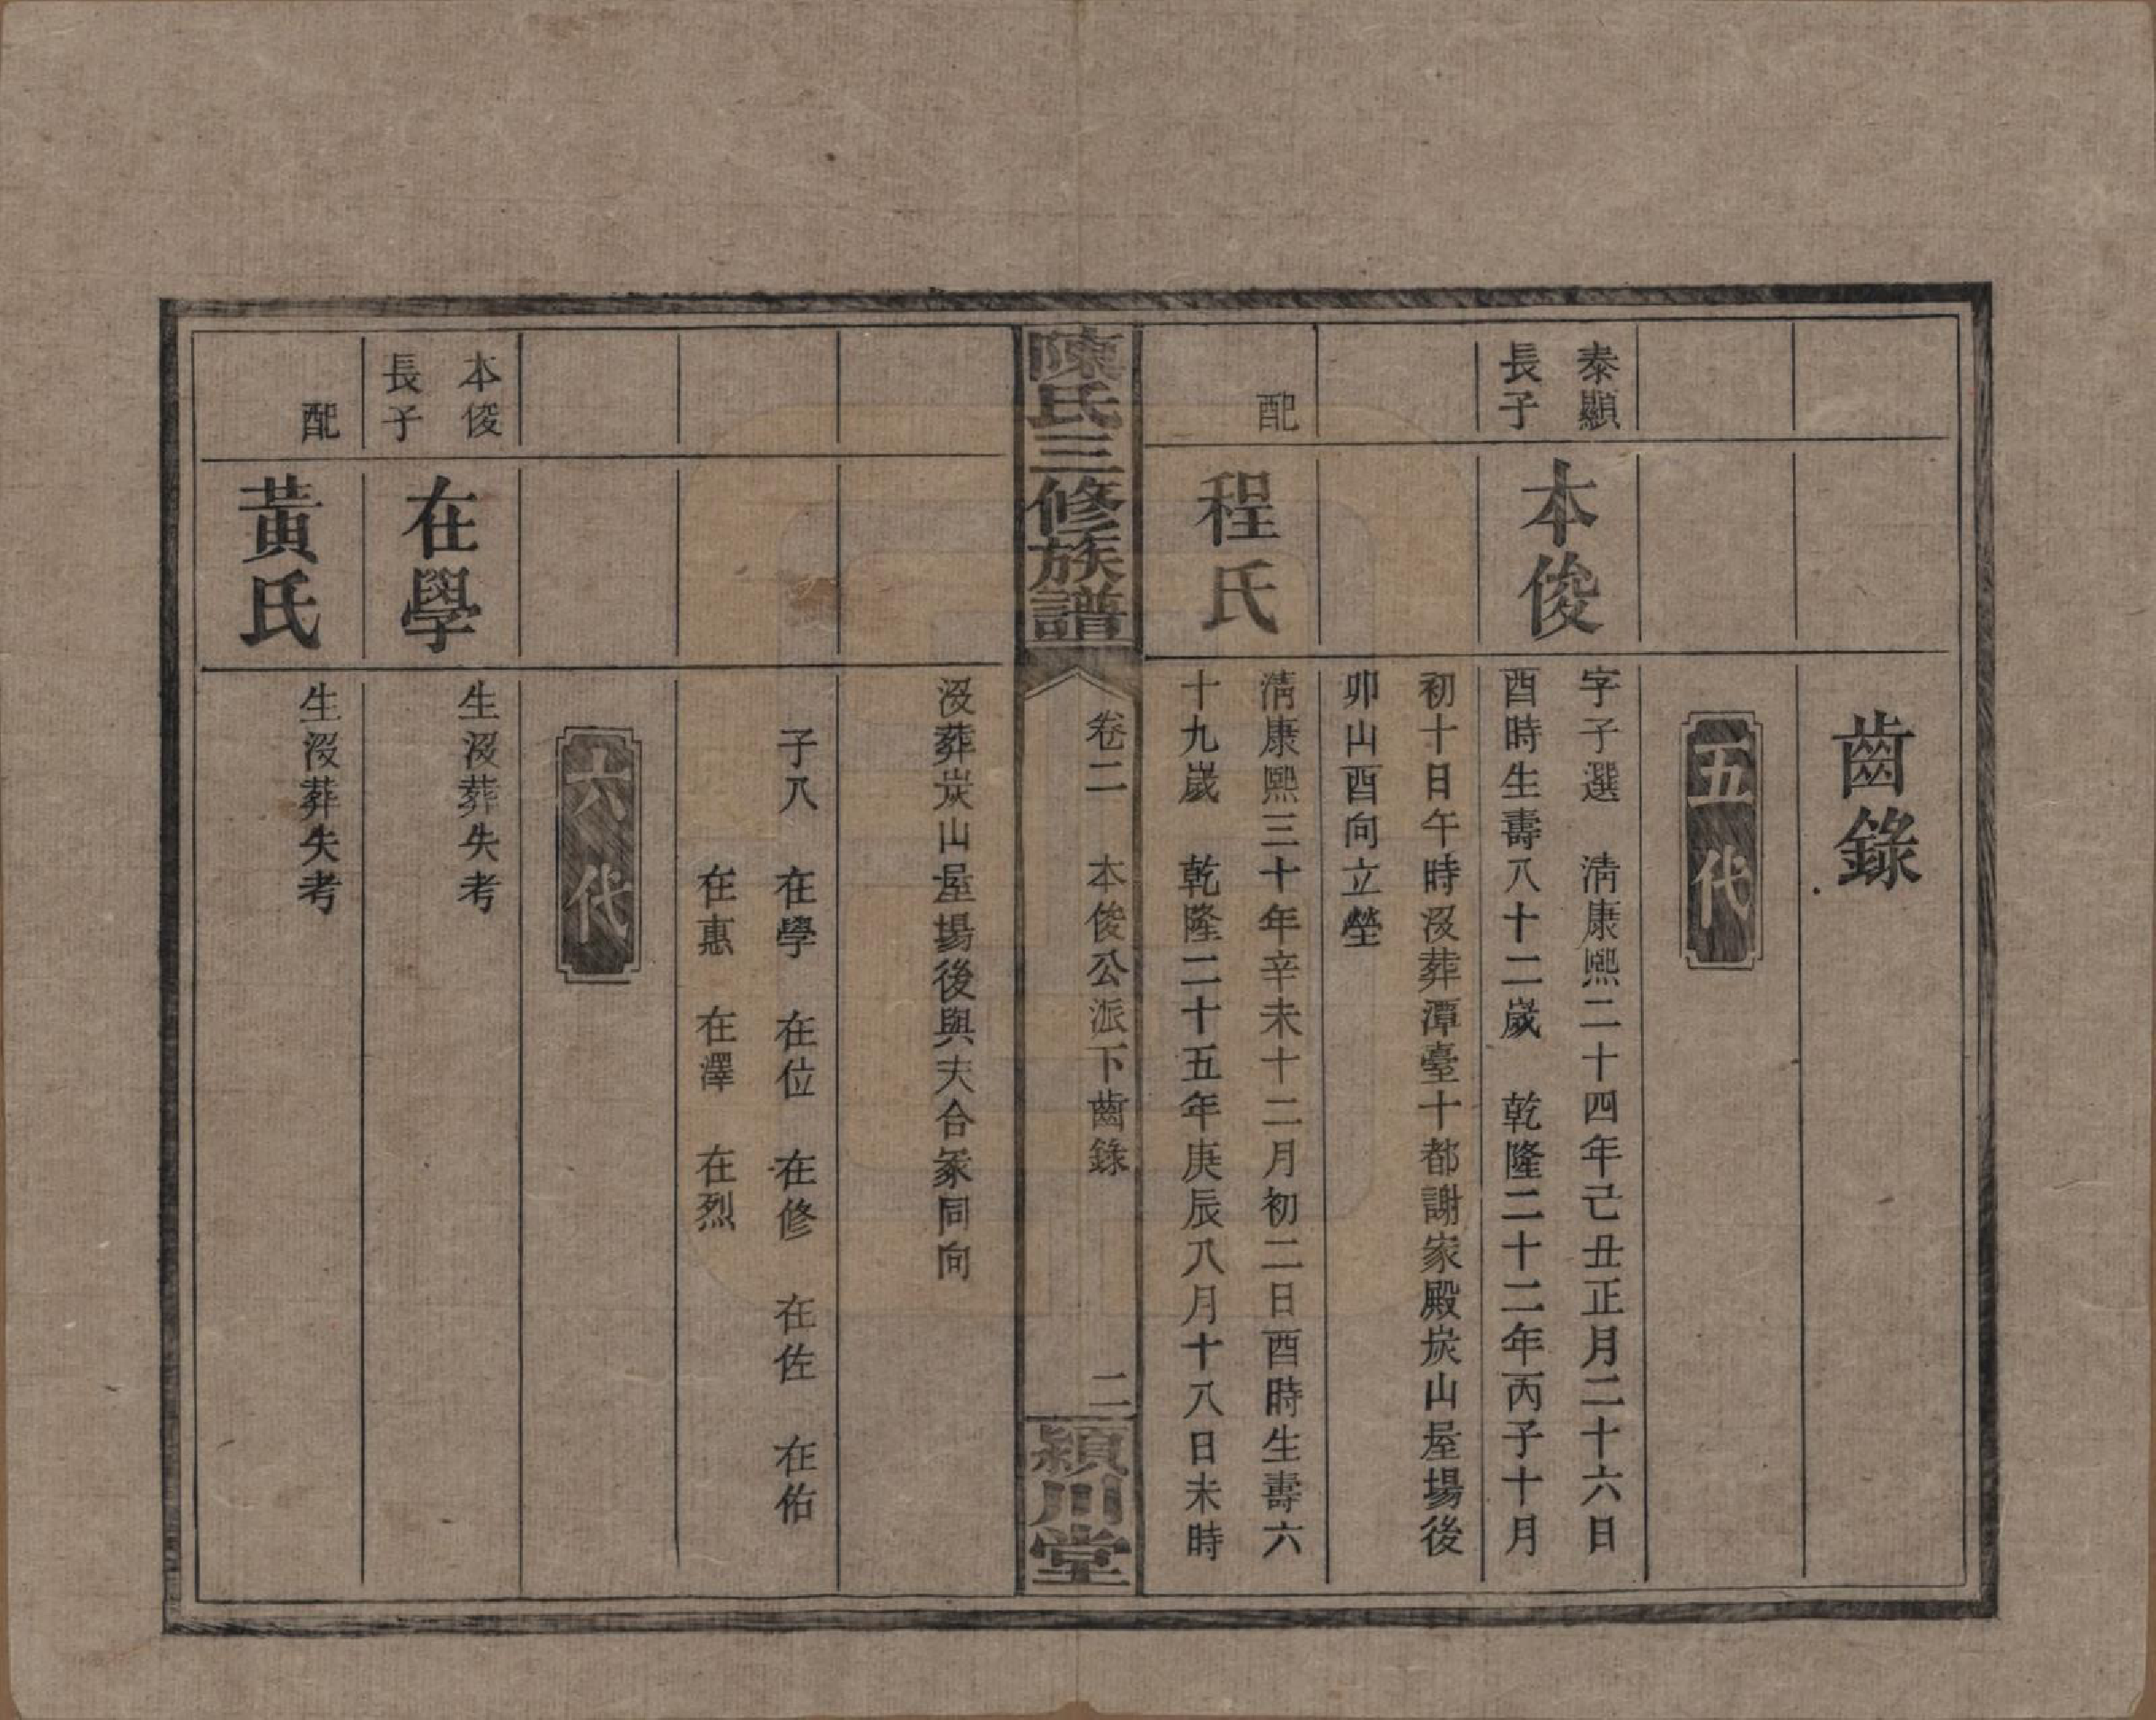 齒錄
五代
泰顯
長子
本俊
字子選　清康熙二十四年己丑正月二十六日
酉時生壽八十二歲　乾隆二十二年丙子十月
初十日午時沒葬潭臺十都謝家殿炭山屋場後
卯山酉向立塋
配
程氏
清康熙三十年辛未十二月初二日酉時生壽六
十九歲　乾隆二十五年庚辰八月十八日未時
陳氏三修族譜
卷二　本俊公派下齒錄
二
潁川堂
沒葬炭山屋場後與夫合冢同向
子八　在學　在位　在修　在佐　在佑
在惠　在澤　在烈
六代
本俊
長子
在學
生沒葬失考
配
黃氏
生沒葬失考